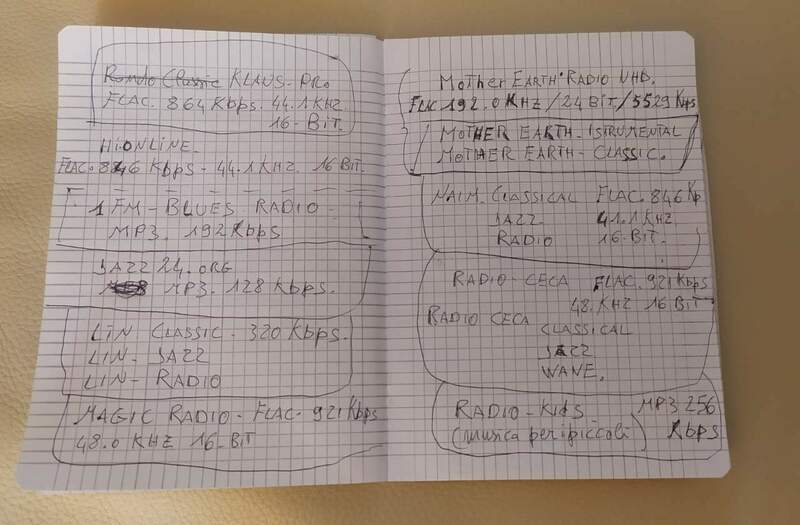 Rondo Classic KLAUS-PRO
FLAC. 864 Kbps. 44.1 KHZ
16-BIT.
HiONLINE.
FLAC. 846 Kbps - 44.1 KHZ. 16 BIT.
1 FM-BLUES RADIO-
MP3. 192 Kbps
JAZZ 24.ORG
MP3. 128 Kbps.
LIN CLASSIC - 320 Kbps.
LIN- JAZZ
LIN- RADIO
MAGIC RADIO- FLAC- 921 Kbps
48.0 KHZ 16-BIT
MOTHER EARTH RADIO UHD.
FLAC 192.0 KHZ/24 BIT/5529 Kbps
MOTHER EARTH-ISTRUMENTAL
MOTHER EARTH-CLASSIC.
NAIM. CLASSICAL FLAC. 846 Kp
JAZZ 41.1 KHZ
RADIO 16-BIT.
RADIO-CECA FLAC. 921 Kbps
48.KHZ 16 BIT
RADIO CECA
CLASSICAL
JAZZ
WANE.
RADIO-KIdS MP3 256
(musica per i piccoli) Kbps